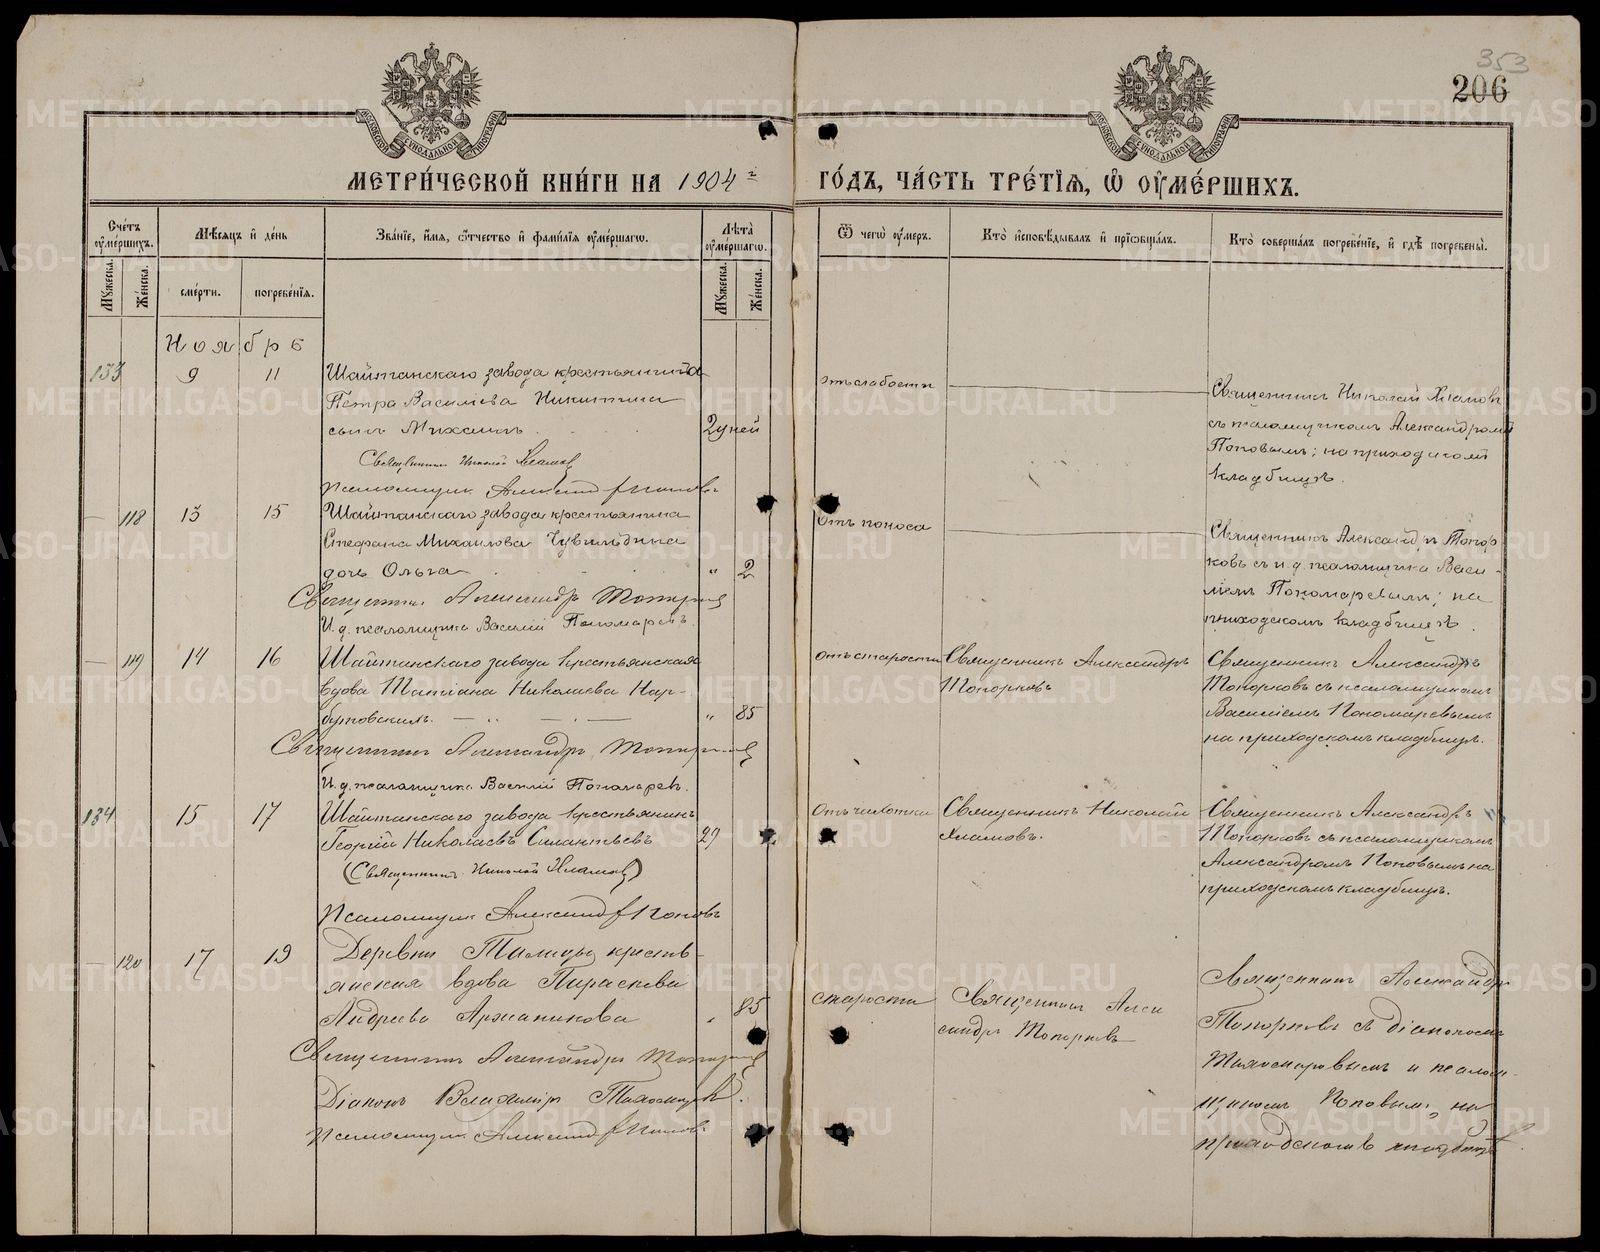 353
206
МОСКОВСКОЙ СУНОДАЛЬНОЙ ТИПОГРАФІИ
МОСКОВСКОЙ СУНОДАЛЬНОЙ ТИПОГРАФІИ
МЕТРИ́ЧЕСКОЙ КНИ́ГИ НА 1904 г
ГО́ДЪ, ЧА́СТЬ ТРЕ́ТІѦ, Ѽ ОУ҆МЕ́РШИХЪ.
Счетъ оумершихъ.
Мѣсяцъ и день
Званіе, имя, отчество и фамилія оумершагѡ.
Лѣта оумершагѡ.
Ѿ чегѡ оумеръ.
Кто исповѣдывалъ и пріѡбщалъ.
Кто совершалъ погребеніе, и гдѣ погребены.
Мужеска.
Женска.
смерти.
погребенія.
Мужеска.
Женска.
Ноябрь
133 9 11 Шайтанскаго завода крестьянина
Петра Василіева Никитина
сынъ Михаилъ 2 дней
Священникъ Николай
Псаломщикъ Александръ Поповъ
отъ слабости
Священникъ Николай
съ псаломщикомъ Александромъ
Поповымъ; на приходскомъ
кладбищѣ.
118 13 15 Шайтанскаго завода крестьянина
Стефана Михаилова Чувильдина
дочь Ольга " 2
Священникъ Александръ Топорковъ
И. д. псаломщика Василій Пономаревъ.
отъ поноса
Священникъ Александръ Топор-
ковъ съ и. д. псаломщика Васи-
ліемъ Пономаревымъ; на
приходскомъ кладбищѣ.
119 14 16 Шайтанскаго завода крестьянская
вдова Татіана Николаева Нар-
бутовскихъ. " 85
Священникъ Александръ Топорковъ
И. д. псаломщика Василій Пономарев.
отъ старости
Священникъ Александръ
Топорковъ
Священникъ Александръ
Топорковъ съ псаломщикомъ
Василіемъ Пономаревымъ
на приходскомъ кладбищѣ.
134 15 17 Шайтанскаго завода крестьянинъ
Георгій Николаевъ Силантьевъ 29
(Священникъ Николай)
Псаломщикъ Александръ Поповъ
Отъ чахотки
Священникъ Николай
Священникъ Александръ
Топорковъ съ псаломщикомъ
Александромъ Поповымъ на
приходскомъ кладбищѣ.
120 17 19 Деревни Талицы кресть-
янская вдова Параскева
Андреева Аржанникова 85
Священникъ Александръ Топорковъ
Діаконъ Владимір
Псаломщикъ Александръ Поповъ
старости
Священникъ Алек
сандръ Топорковъ
Священникъ Александръ
Топорковъ съ діакономъ
и псалом-
щикомъ Поповымъ, на
приходскомъ кладбищѣ
METRIKI.GASO-URAL.RU